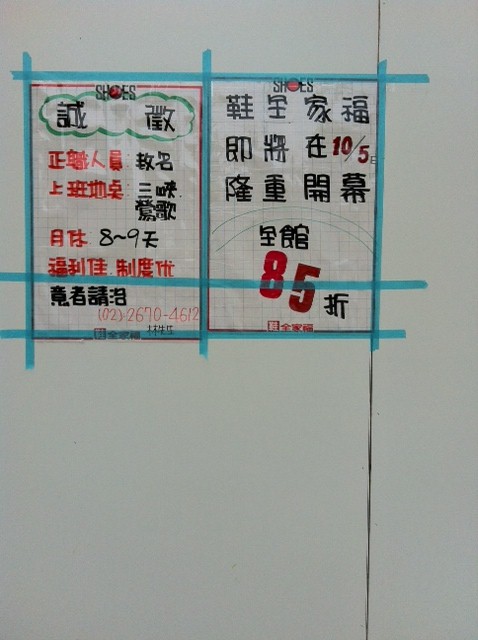 SHOES
誠 徵
正職人員 數名
上班地桌 三峽
鶯歌
月休 8~9天
福利佳 制度优
意者請洽
(02)2670-4612
鞋全家福 林先任
SHOES
鞋全家福
即將在10/5日
隆重開幕
全館
85折
鞋全家福